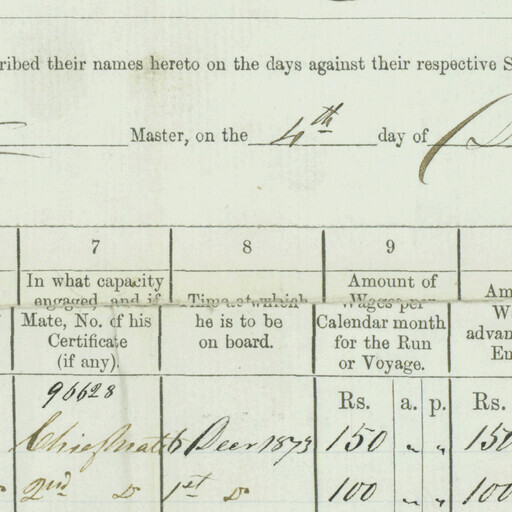 ribed their names hereto on the days against their respective S
Master, on the 4th day of
7 8 9
In what capacity engaged, and if Mate, No. of his Certificate (if any).
Time at which he is to be on board.
Amount of Wages per Calendar month for the Run or Voyage.
Am
W
advan
En
96628
Rs. a. p. Rs.
Chief Mate 6 Decr 1873 150 " " 150
2nd Do 1st Do 100 " " 100